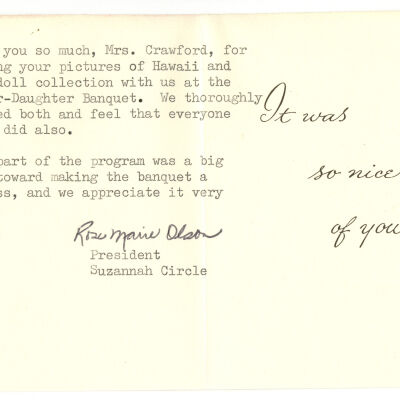 you so much, Mrs. Crawford, for
ng your pictures of Hawaii and
doll collection with us at the
r-Daughter Banquet. We thoroughly
ed both and feel that everyone
did also.
part of the program was a big
toward making the banquet a
ss, and we appreciate it very
Rose Marie Olson
President
Suzannah Circle
It was
so nice
of you